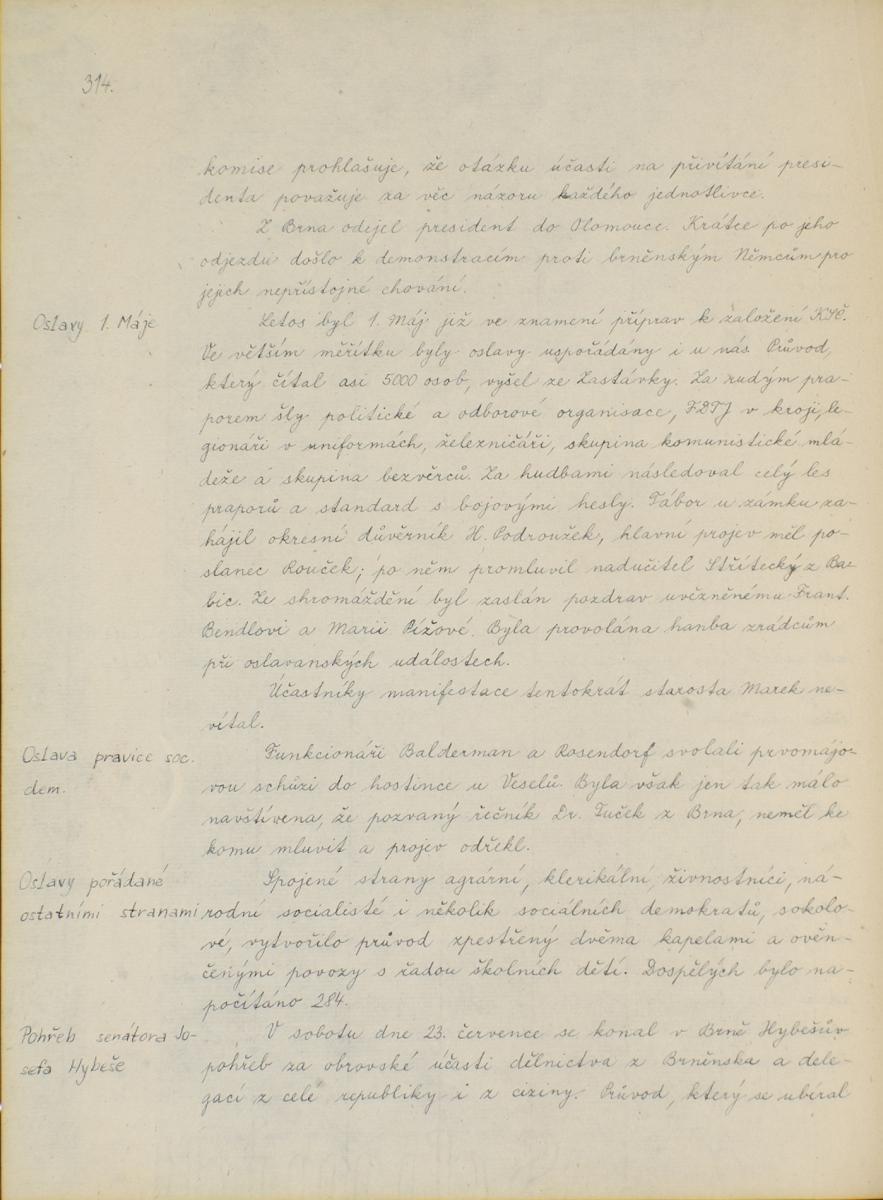 314.
komise prohlašuje, že otázku účasti na přivítání presi-
denta považuje za věc názoru každého jednotlivce.
Z Brna odejel president do Olomouce. Krátce po jeho
odjezdu došlo k demonstracím proti brněnským Němcům pro
jejich nepřístojné chování.
Oslavy 1. Máje
Letos byl 1. Máj již ve znamení příprav k založení KSČ.
Ve větším měřítku byly oslavy uspořádány i u nás. Průvod,
který čítal asi 5000 osob, vyšel ze Zastávky. Za rudým pra-
porem šly politické a odborové organisace, FDTJ v kroji, le-
gionáři v uniformách, železničáři, skupina komunistické mlá-
deže a skupina bezvěrců. Za hudbami následoval celý les
praporů a standard s bojovými hesly. Tábor u zámku za-
hájil okresní důvěrník H. Podroužek, hlavní projev měl po-
slanec Rouček; po něm promluvil nadučitel Střítecký z Ba-
bic. Ze shromáždění byl zaslán pozdrav uvězněnému Frant.
Bendlovi a Marii Pížové. Byla provolána hanba zrádcům
při oslavanských událostech.
Účastníky manifestace tentokrát starosta Marek ne-
vítal.
Oslava pravice soc.
dem.
Funkcionáři Balderman a Rosendorf svolali prvomájo-
vou schůzi do hostince u Veselů. Byla však jen tak málo
navštívena, že pozvaný řečník Dr. Tuček z Brna, neměl ke
komu mluvit a projev odřekl.
Oslavy pořádané
ostatními stranami
Spojené strany agrární, klerikální, živnostníci, ná-
rodní socialisté i několik sociálních demokratů, sokolo-
vé, vytvořilo průvod zpestřený dvěma kapelami a ověn-
čenými povozy s řadou školních dětí. Dospělých bylo na-
počítáno 284.
Pohřeb senátora Jo-
sefa Hybeše
V sobotu dne 23. července se konal v Brně Hybešův
pohřeb za obrovské účasti dělnictva z Brněnska a dele-
gací z celé republiky i z ciziny. Průvod, který se ubíral